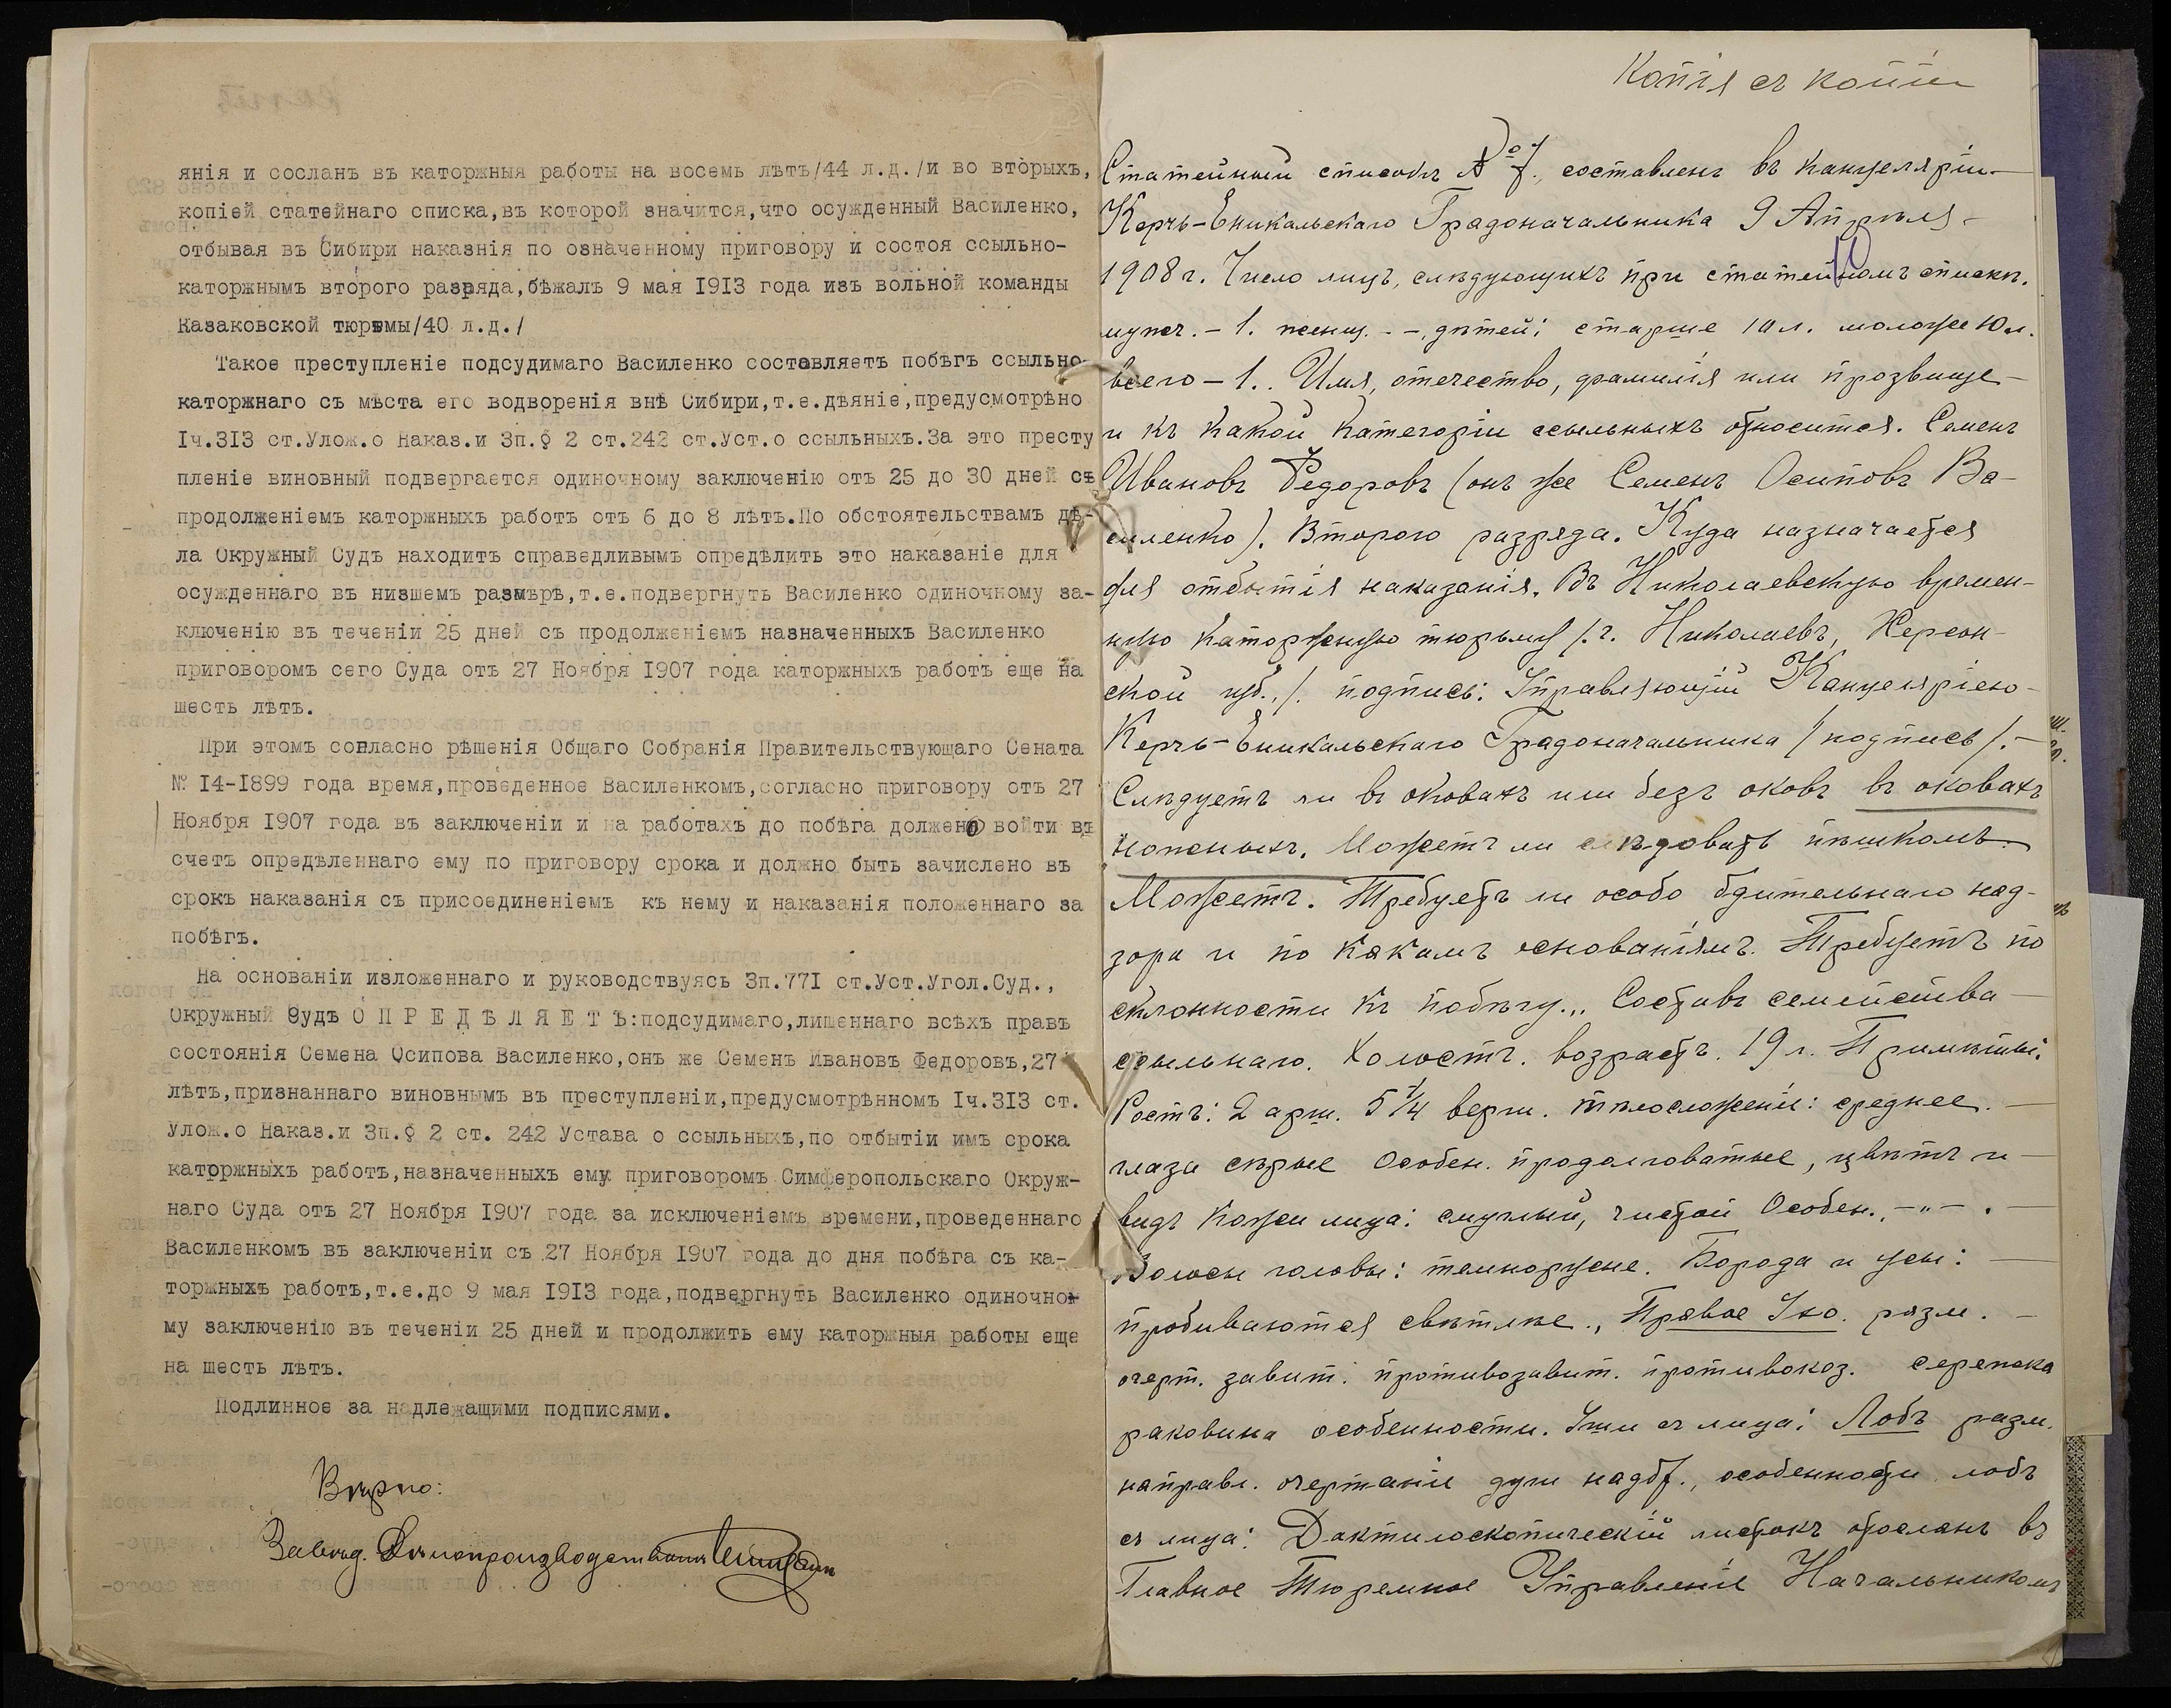 янія и сосланъ въ каторжныя работы на восемь лѣтъ/44 л.д./и во вторыхъ,
копіей статейнаго списка,въ которой значится,что осужденный Василенко,
отбывая въ Сибири наказнія по означенному приговору и состоя ссыльно-
каторжнымъ второго разряда,бѣжалъ 9 мая 1913 года изъ вольной команды
Казаковской тюрьмы/40 л.д./
Такое преступленіе подсудимаго Василенко составляетъ побѣгъ ссыльно-
каторжнаго съ мѣста его водворенія внѣ Сибири,т.е.дѣяніе,предусмотрѣно
Iч.313 ст.Улож.о Наказ.и 3п.§ 2 ст.242 ст.Уст.о ссыльныхъ.За это престу
пленіе виновный подвергается одиночному заключенію отъ 25 до 30 дней съ
продолженіемъ каторжныхъ работъ отъ 6 до 8 лѣтъ.По обстоятельствамъ дѣ-
ла Окружный Судъ находитъ справедливымъ опредѣлить это наказаніе для
осужденнаго въ низшемъ размѣрѣ,т.е.подвергнуть Василенко одиночному за-
ключенію въ теченіи 25 дней съ продолженіемъ назначенныхъ Василенко
приговоромъ сего Суда отъ 27 Ноября 1907 года каторжныхъ работъ еще на
шесть лѣтъ.
При этомъ согласно рѣшенія Общаго Собранія Правительствующаго Сената
№ 14-1899 года время,проведенное Василенкомъ,согласно приговору отъ 27
Ноября 1907 года въ заключеніи и на работахъ до побѣга должено войти въ
счетъ опредѣленнаго ему по приговору срока и должно быть зачислено въ
срокъ наказанія съ присоединеніемъ къ нему и наказанія положеннаго за
побѣгъ.
На основаніи изложеннаго и руководствуясь 3п.771 ст.Уст.Угол.Суд.,
Окружный Судъ О П Р Е Д Ѣ Л Я Е Т Ъ:подсудимаго,лишеннаго всѣхъ правъ
состоянія Семена Осипова Василенко,онъ же Семенъ Ивановъ Федоровъ,27
лѣтъ,признаннаго виновнымъ въ преступленіи,предусмотрѣнномъ Iч.313 ст.
Улож.о Наказ.и 3п.§ 2 ст. 242 Устава о ссыльныхъ,по отбытіи имъ срока
каторжныхъ работъ,назначенныхъ ему приговоромъ Симферопольскаго Окруж-
наго Суда отъ 27 Ноября 1907 года за исключеніемъ времени,проведеннаго
Василенкомъ въ заключеніи съ 27 Ноября 1907 года до дня побѣга съ ка-
торжныхъ работъ,т.е.до 9 мая 1913 года,подвергнуть Василенко одиночно
му заключенію въ теченіи 25 дней и продолжить ему каторжныя работы еще
на шесть лѣтъ.
Подлинное за надлежащими подписями.
Вѣрно:
Завѣд. Дѣлопроизводствомъ
Копія съ копіи
Статейный списокъ № 7, составленъ въ канцеляріи
Керчь-Еникальскаго Градоначальника 9 Апрѣля
1908 г. Число лицъ, слѣдующихъ при статейномъ спискѣ.
мужч. – 1. женщ. – –, дѣтей: старше 10 л. моложе 10 л.
всего – 1.. Имя, отечество, фамилія или прозвище
и къ какой категоріи ссыльныхъ относится. Семенъ
Ивановъ Федоровъ (онъ же Семенъ Осиповъ Ва-
силенко). Второго разряда. Куда назначается
для отбытія наказанія. Въ Николаевскую времен-
ную каторжную тюрьму /.г. Николаевъ, Херсон-
ской губ./. подпись: Управляющій Канцеляріею
Керчь-Еникальскаго Градоначальника /подпись/.–
Слѣдуетъ ли въ оковахъ или безъ оковъ въ оковахъ
ножныхъ. Можетъ ли слѣдовать пѣшкомъ
Можетъ. Требуетъ ли особо бдительнаго над-
зора и по какимъ основаніямъ. Требуетъ по
склонности къ побѣгу... Составъ семейства
ссыльнаго. Холостъ. возрастъ. 19 л. Примѣты:
Ростъ: 2 арш. 5 1/4 верш. тѣлосложеніе: среднее.
глаза сѣрые Особен. продолговатые, цвѣтъ и
видъ кожи лица: смуглый, чистой Особен. –"– .
Волосы головы: темнорусые. Борода и усы:
пробиваются свѣтлые., Правое Ухо. разм. –
очерт. завит. противозавит. противокоз. сережка
раковина особенности. Уши съ лица: Лобъ разм.
направл. очертаніе дуги надбр., особенности лобъ
съ лица: Дактилоскопическій листокъ отосланъ въ
Главное Тюремное Управленіе Начальникомъ